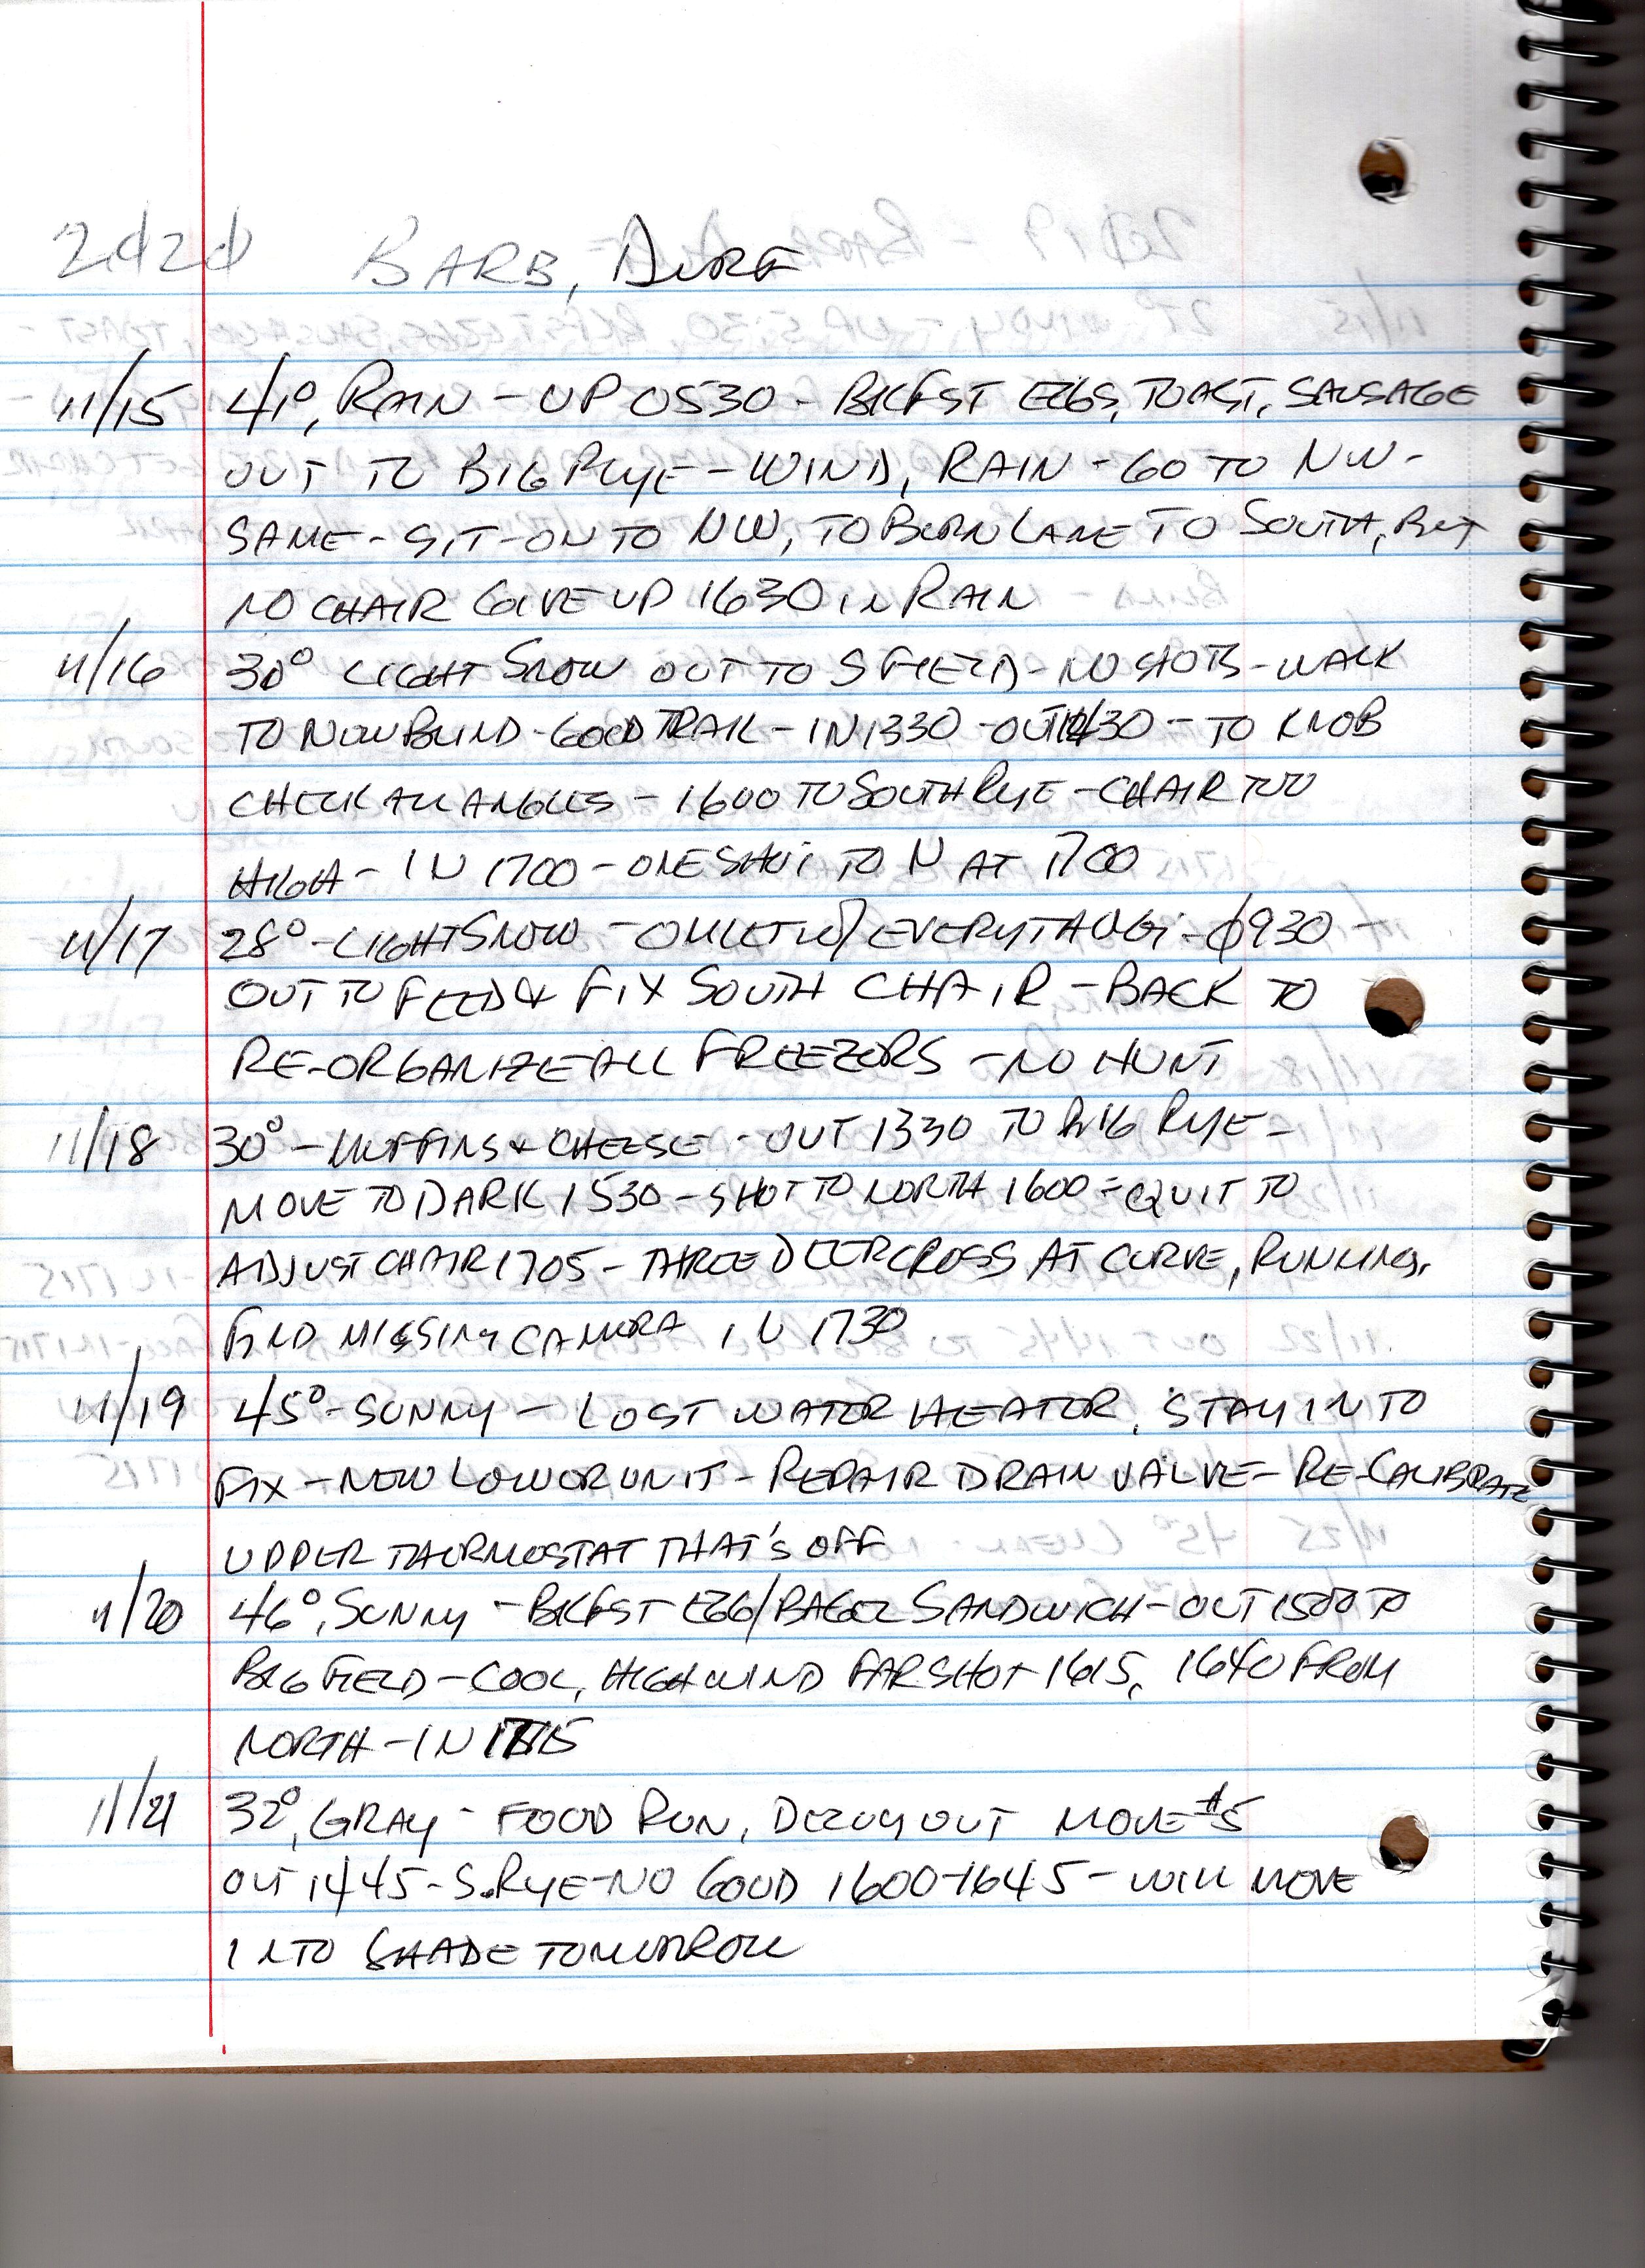 2020 BARB, DURF
11/15 41°, RAIN - UP 0530 - BKFST EGGS, TOAST, SAUSAGE
OUT TO BIG RYE - WIND, RAIN - GO TO NW -
SAME - SIT - ON TO NW, TO BURN LANE TO SOUTH, BUT
NO CHAIR GIVE UP 1630 IN RAIN
11/16 30° LIGHT SNOW OUT TO S FIELD - NO SHOTS - WALK
TO NEW BLIND - GOOD TRAIL - IN 1330 - OUT 1430 - TO KNOB
CHECK ALL ANGLES - 1600 TO SOUTH RYE - CHAIR TOO
HIGH - IN 1700 - ONE SHOT TO N AT 1700
11/17 28° - LIGHT SNOW - OMLET W/ EVERYTHING - 0930 -
OUT TO FEED & FIX SOUTH CHAIR - BACK TO
RE-ORGANIZE ALL FREEZERS - NO HUNT
11/18 30° - MUFFINS & CHEESE - OUT 1330 TO BIG RYE -
MOVE TO DARK 1530 - SHOT TO NORTH 1600 - QUIT TO
ADJUST CHAIR 1705 - THREE DEER CROSS AT CURVE, RUNNING,
FIND MISSING CAMERA IN 1730
11/19 45° - SUNNY - LOST WATER HEATER, STAY IN TO
FIX - NEW LOWER UNIT - REPAIR DRAIN VALVE - RE-CALIBRATE
UPPER THERMOSTAT THAT'S OFF
11/20 46°, SUNNY - BKFST EGG/BAGEL SANDWICH - OUT 1500 TO
BIG FIELD - COOL, HIGH WIND FAR SHOT 1615, 1640 FROM
NORTH - IN 1715
11/21 32°, GRAY - FOOD RUN, DECOY OUT MOVE #5
OUT 1445 - S. RYE - NO GOOD 1600-1645 - WILL MOVE
INTO SHADE TOMORROW